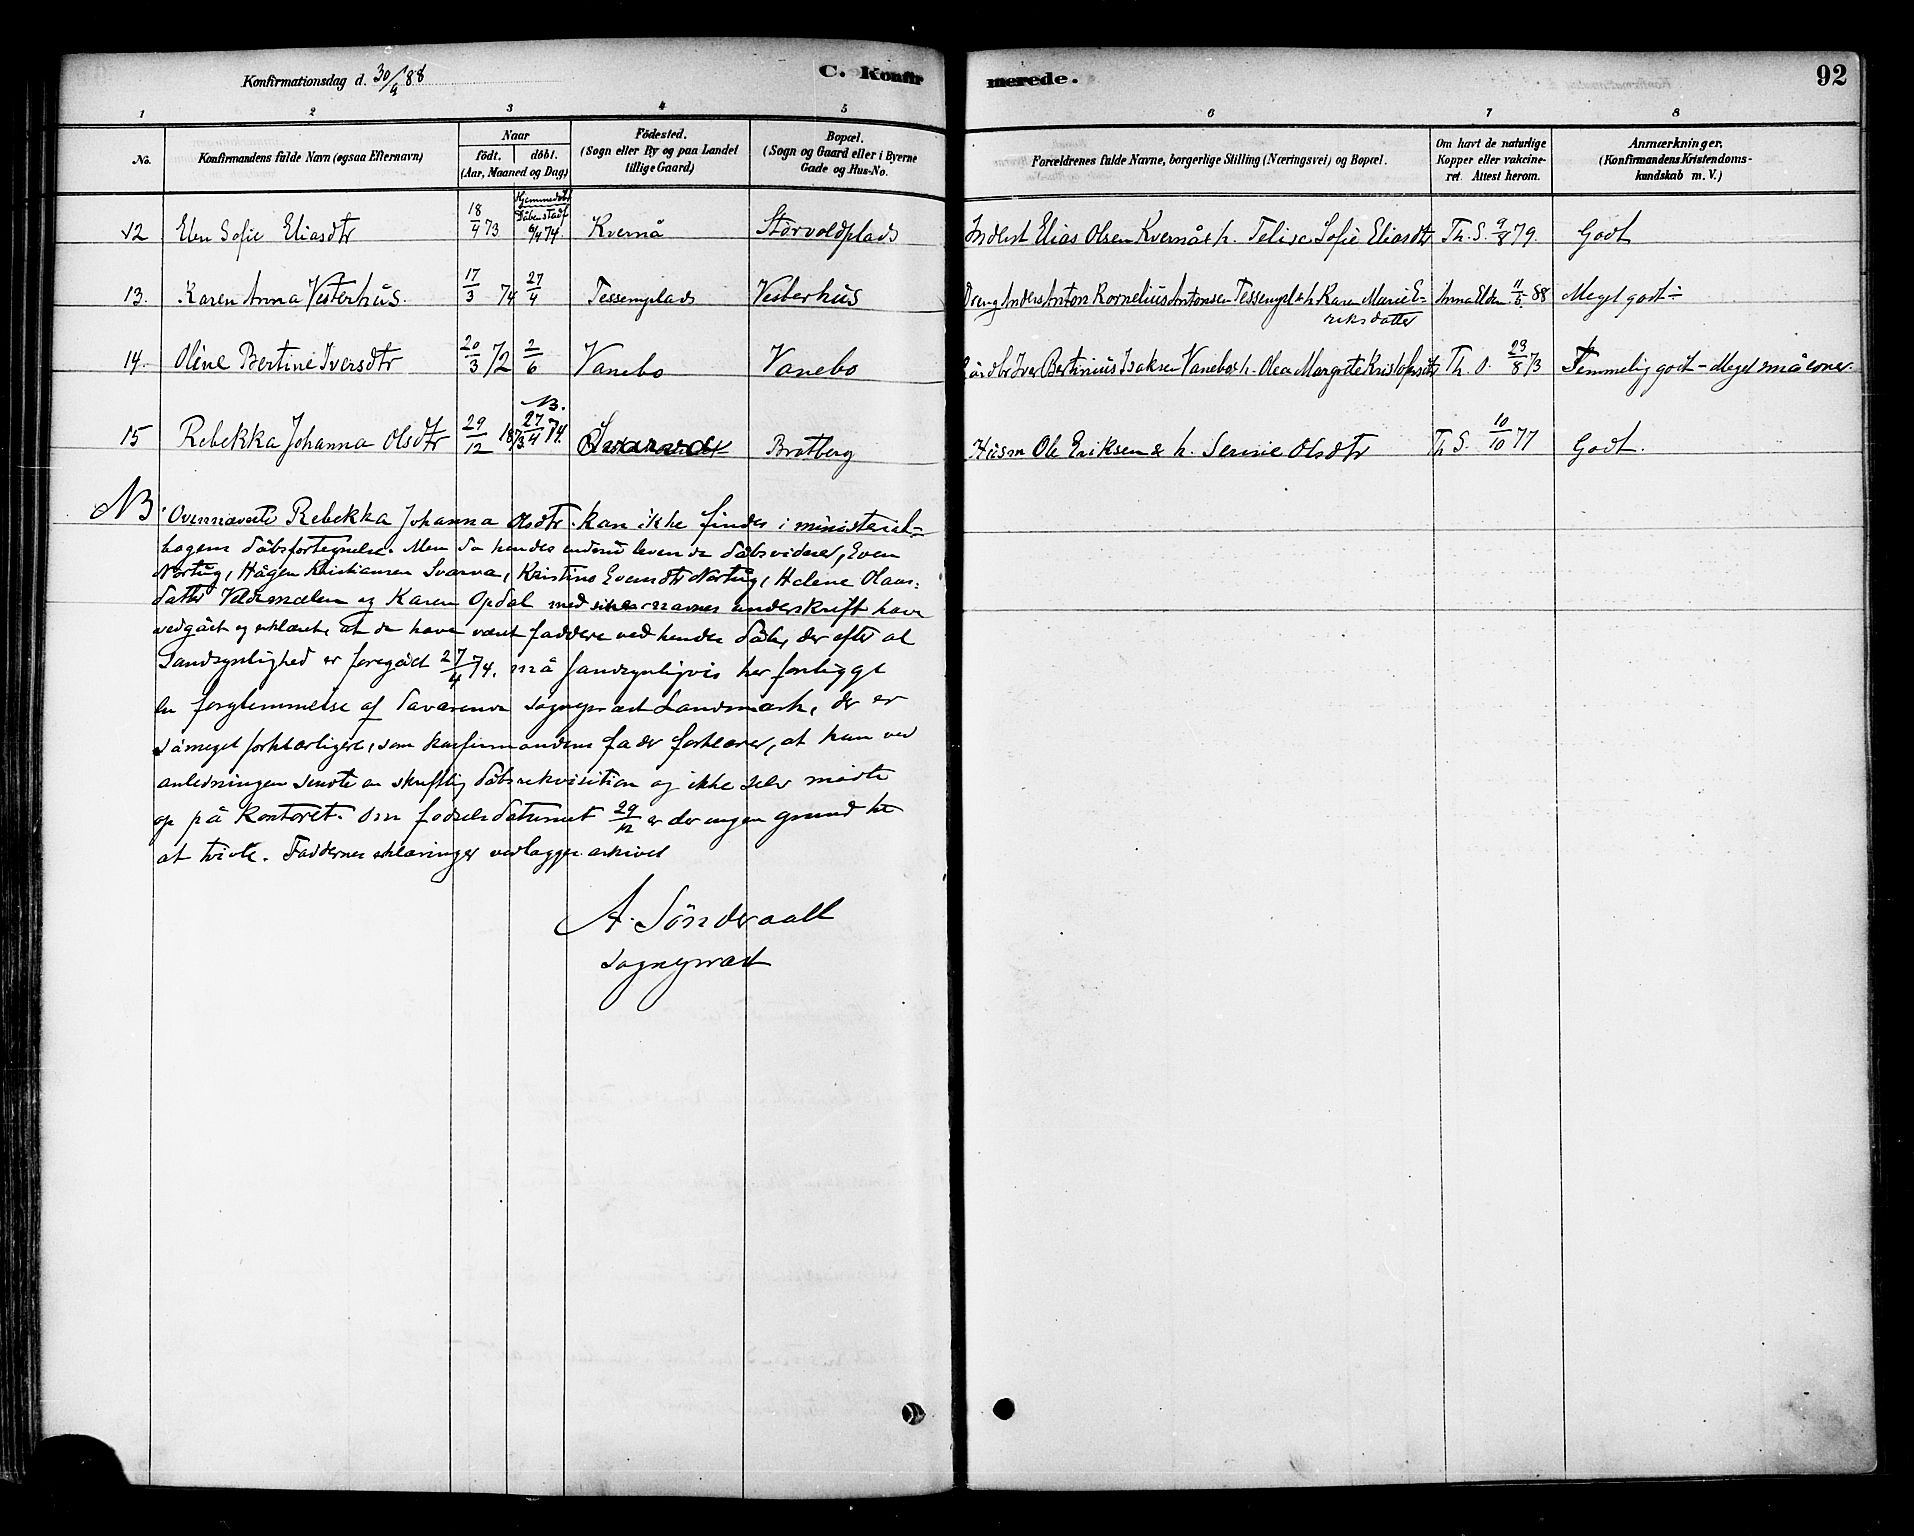 Konfirmationsdag d. 30/9 88
C. Konfirmerede.
92
1 2 3 4 5 6 7 8
No.
Konfirmandens fulde Navn (ogsaa Efternavn)
Naar
födt. | döbt.
(Aar, Maaned og Dag)
Födested.
(Sogn eller By og paa Landet
tillige Gaard)
Bopæl.
(Sogn og Gaard eller i Byerne
Gade og Hus-No.
Forældrenes fulde Navne, borgerlige Stilling (Næringsvei) og Bopæl.
Om havt de naturlige
Kopper eller vakcine-
ret. Attest herom.
Anmærkninger.
(Konfirmandens Kristendoms-
kundskab m. V.)
12 Elen Sofie Eliasdtr 18/9 73 Hjemmedöbt Dåben stadf. 6/4 74. Kvernå Storvoldplads Inderst Elias Olsen Kvernå & h. Sofie Eliasdtr Th. S. 9/8 79. Godt
13. Karen Anna Vesterhus. 17/3 74 27/4 Tessemplads Vesterhus Dreng Anders Anton Kornelius Antonsen Tessempl & h. Karen Marie E-
riksdatter 11/5 88 Meget godt
14. Oline Bertine Iversdtr 20/3 72 2/6 Vanebo Vanebo Gårdbr Iver Bertinius Isaksen Vanebo & h. Olea Margrete Kristofersdtr Th. O. 29/8 73 Temmelig godt - Meget små evner.
NB.
15 Rebekka Johanna Olsdtr 29/12 1873 27/4 74. Bratberg Husm Ole Eriksen & h. Serine Olsdtr Th S. 10/10 77 Godt.
NB. Ovennævnte Rebekka Johanna Olsdtr. kan ikke findes i ministerial-
bogens dåbsfortegnelse. Men da hendes endnu levende dåbsvidner, Even
Nortug, Hågen Kristiansen Svarva, Kristine Evensdtr Nortug, Helene Olaus-
datter Veldemælen og Karen Opdal med sine navnes underskrift have
vedgået og erklæret, at de have været faddere ved hendes dåb, der efter al
Sandsynlighed er foregået 27/4 74. må sandsynligvis her foreligge
en forglemmelse af daværende sogneprest Landmark, der er
såmeget forklarligere, som konfirmandens fader forklarer, at han ved
anledningen sendte en skriftlig dåbsrekvisition og ikke selv mødte
op på kontoret. Om fødselsdatumet 29/12 er der ingen grund til
at tvivle. Faddernes erklæringer vedlægges arkivet
A. Sönderaall
sogneprest